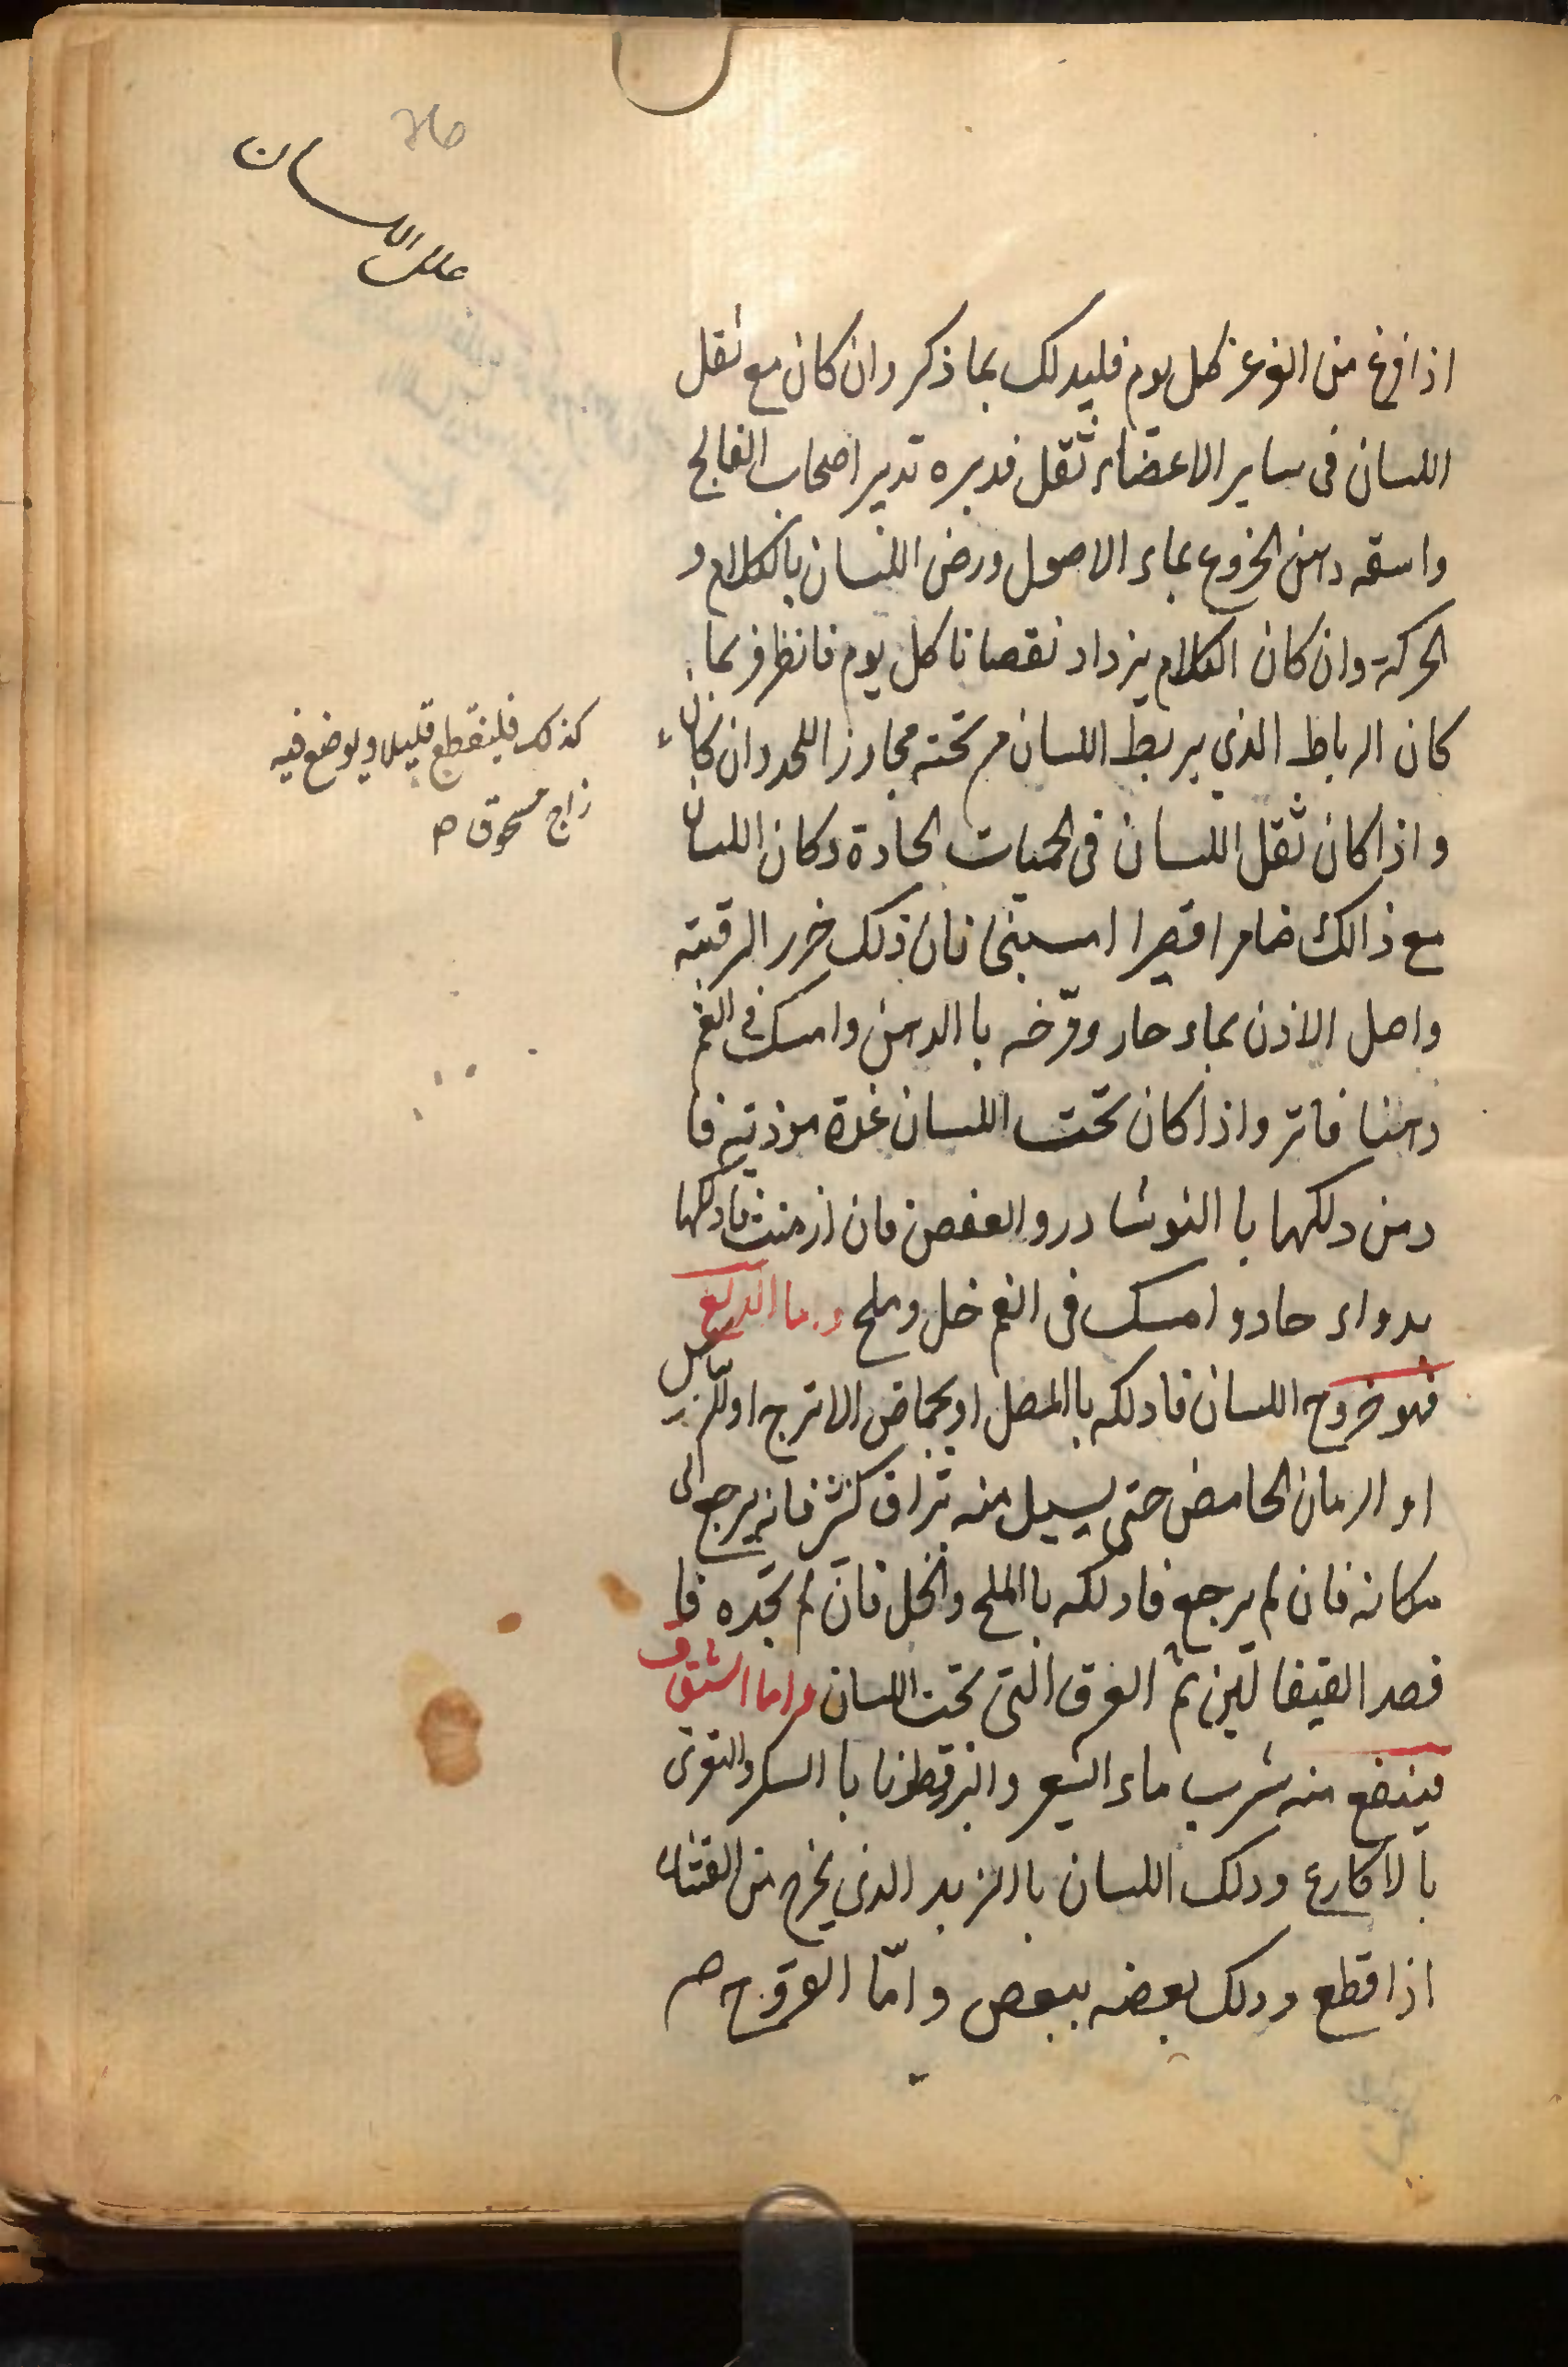 علل اللسان
اذا فرغ من الغرغرة كل يوم فليدلك بما ذكر وان كان مع ثقل
اللسان فى ساير الاعضاء ثقل فدبره تدبير اصحاب الفالج
واسقه دهن الخروع بماء الاصول ورض اللسان بالكلام و
الحركة وان كان الكلام يزداد نقصانا كل يوم فانظر فربما
كان الرباط الذي يربط اللسان من تحته مجاوز اللحد وان كان
كذلك فليقطع قليلا ويوضع فيه
زاج مسحوق صح
واذا كان ثقل اللسان فى الحميات الحادة وكان اللسان
مع ذالك ضامرا قصيرا فان ذلك خرز الرقبته
واصل الاذن بماء حار ومرّخه با الدهن وامسك فى الفم
دهنا فاتر واذا كان تحت اللسان غدة موذتيه فا
دمن دلكها با النوشادر والعفص فان ازمنت فادلكها
بدواء حاد وامسك فى الفم خل وملح واما اندلاع
فهو خروج اللسان فادلكه با المصل او بحماض الاترج او
او الرمان الحامض حتى يسيل منه بزاق كثير فانه يرجع الى
مكانه فان لم يرجع فادلكه با الملح والخل فان لم تجده فا
فصد القيفالين ثم العرق التى تحت اللسان واما الشقاق
فينفع منه شرب ماء الشعير والبزرقطونا با السكر والتغرى
بالاكارع ودلك اللسان بالزبد الذى يخرج من القثاء
اذا قطع ودلك بعضه ببعض وامّا القروح